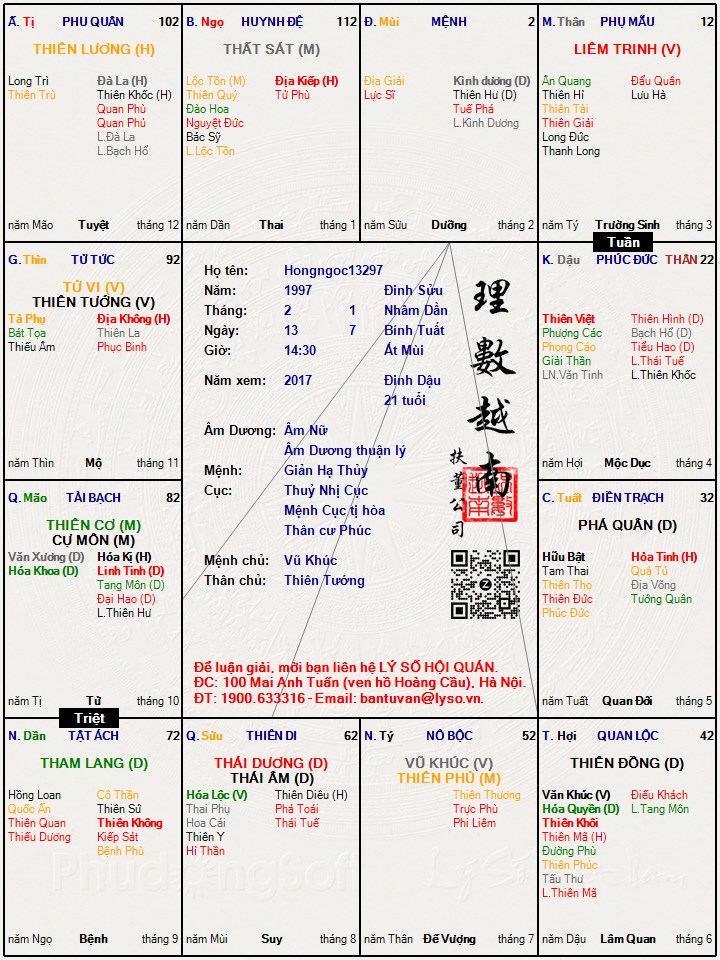 Ấ. Tị PHU QUÂN 102
THIÊN LƯƠNG (H)
Long Trì
Thiên Trù
Đà La (H)
Thiên Khốc (H)
Quan Phù
Quan Phủ
L.Đà La
L.Bạch Hổ
năm Mão Tuyệt tháng 12
B. Ngọ HUYNH ĐỆ 112
THẤT SÁT (M)
Lộc Tồn (M)
Thiên Quý
Đào Hoa
Nguyệt Đức
Bác Sỹ
L.Lộc Tồn
Địa Kiếp (H)
Tử Phù
năm Dần Thai tháng 1
Đ. Mùi MỆNH 2
Địa Giải
Lực Sĩ
Kình dương (D)
Thiên Hư (D)
Tuế Phá
L.Kình Dương
năm Sửu Dưỡng tháng 2
M. Thân PHỤ MẪU 12
LIÊM TRINH (V)
Ân Quang
Thiên Hỉ
Thiên Tài
Thiên Giải
Long Đức
Thanh Long
Đẩu Quân
Lưu Hà
năm Tý Trường Sinh tháng 3
Tuần
G. Thìn TỬ TỨC 92
TỬ VI (V)
THIÊN TƯỚNG (V)
Tả Phụ
Bát Tọa
Thiếu Âm
Địa Không (H)
Thiên La
Phục Binh
năm Thìn Mộ tháng 11
Họ tên: Hongngoc13297
Năm: 1997 Đinh Sửu
Tháng: 2 1 Nhâm Dần
Ngày: 13 7 Bính Tuất
Giờ: 14:30 Ất Mùi
Năm xem: 2017 Đinh Dậu
21 tuổi
Âm Dương: Âm Nữ
Âm Dương thuận lý
Mệnh: Giản Hạ Thủy
Cục: Thuỷ Nhị Cục
Mệnh Cục tị hòa
Thân cư Phúc
Mệnh chủ: Vũ Khúc
Thân chủ: Thiên Tướng
理
數
越
南
扶
董
公
司
Để luận giải, mời bạn liên hệ LÝ SỐ HỘI QUÁN.
ĐC: 100 Mai Anh Tuấn (ven hồ Hoàng Cầu), Hà Nội.
ĐT: 1900.633316 - Email: bantuvan@lyso.vn.
K. Dậu PHÚC ĐỨC THÂN 22
Thiên Việt
Phượng Các
Phong Cáo
Giải Thần
LN.Văn Tinh
Thiên Hình (D)
Bạch Hổ (D)
Tiểu Hao (D)
L.Thái Tuế
L.Thiên Khốc
năm Hợi Mộc Dục tháng 4
Q. Mão TÀI BẠCH 82
THIÊN CƠ (M)
CỰ MÔN (M)
Văn Xương (D)
Hóa Khoa (D)
Hóa Kị (H)
Linh Tinh (D)
Tang Môn (D)
Đại Hao (D)
L.Thiên Hư
năm Tị Tử tháng 10
C. Tuất ĐIỀN TRẠCH 32
PHÁ QUÂN (D)
Hữu Bật
Tam Thai
Thiên Thọ
Thiên Đức
Phúc Đức
Hỏa Tinh (H)
Quả Tú
Địa Võng
Tướng Quân
năm Tuất Quan Đới tháng 5
Triệt
N. Dần TẬT ÁCH 72
THAM LANG (D)
Hồng Loan
Quốc Ấn
Thiên Quan
Thiếu Dương
Cô Thần
Thiên Sứ
Thiên Không
Kiếp Sát
Bệnh Phù
năm Ngọ Bệnh tháng 9
Q. Sửu THIÊN DI 62
THÁI DƯƠNG (D)
THÁI ÂM (D)
Hóa Lộc (V)
Thai Phụ
Hoa Cái
Thiên Y
Hỉ Thần
Thiên Diêu (H)
Phá Toái
Thái Tuế
năm Mùi Suy tháng 8
N. Tý NÔ BỘC 52
VŨ KHÚC (V)
THIÊN PHỦ (M)
Thiên Thương
Trực Phù
Phi Liêm
năm Thân Đế Vượng tháng 7
T. Hợi QUAN LỘC 42
THIÊN ĐỒNG (D)
Văn Khúc (V)
Hóa Quyền (D)
Thiên Khôi
Thiên Mã (H)
Đường Phù
Thiên Phúc
Tấu Thư
L.Thiên Mã
Điếu Khách
L.Tang Môn
năm Dậu Lâm Quan tháng 6